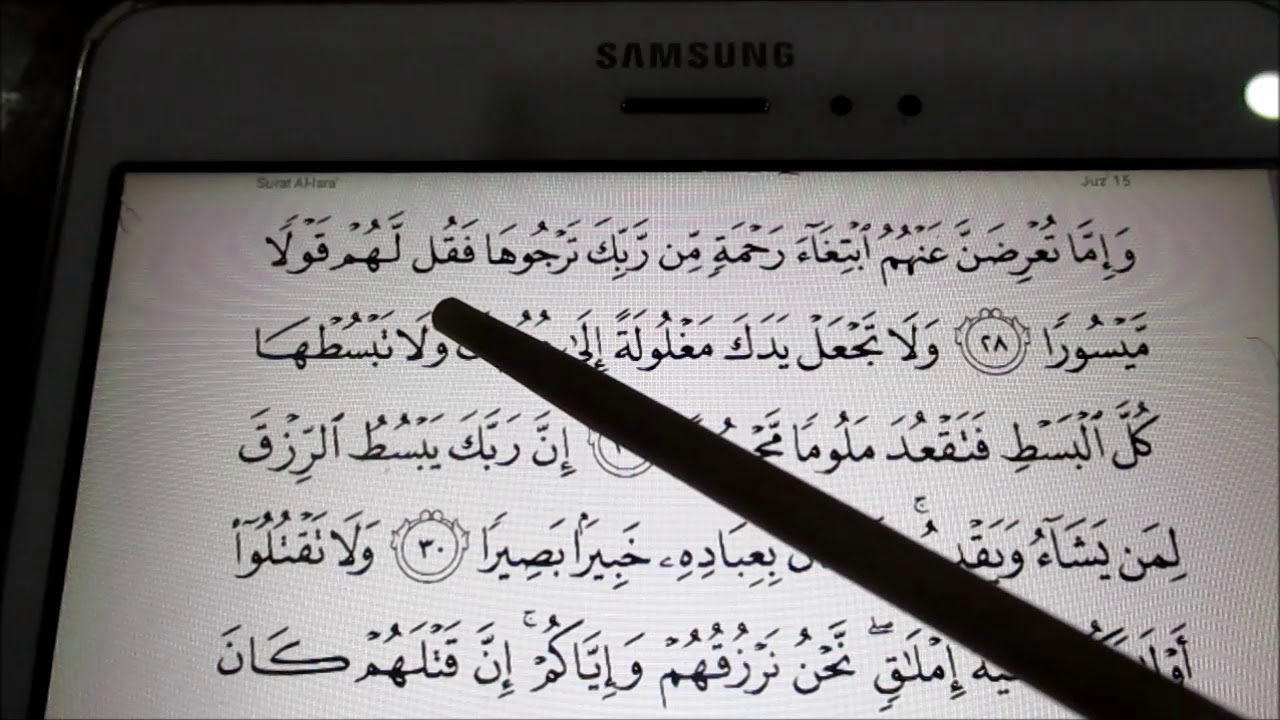 SAMSUNG
Surat Al-Isra' Juz' 15
وَإِمَّا تُعْرِضَنَّ عَنْهُمُ ٱبْتِغَآءَ رَحْمَةٍ مِّن رَّبِّكَ تَرْجُوهَا فَقُل لَّهُمْ قَوْلًا
مَّيْسُورًا ٢٨ وَلَا تَجْعَلْ يَدَكَ مَغْلُولَةً إِلَىٰ وَلَا تَبْسُطْهَا
كُلَّ ٱلْبَسْطِ فَتَقْعُدَ مَلُومًا إِنَّ رَبَّكَ يَبْسُطُ ٱلرِّزْقَ
لِمَن يَشَآءُ وَيَقْدِرُ ۚ بِعِبَادِهِۦ خَبِيرًۢا بَصِيرًا ٣٠ وَلَا تَقْتُلُوٓا۟
إِمْلَـٰقٍ ۖ نَّحْنُ نَرْزُقُهُمْ وَإِيَّاكُمْ ۚ إِنَّ قَتْلَهُمْ كَانَ